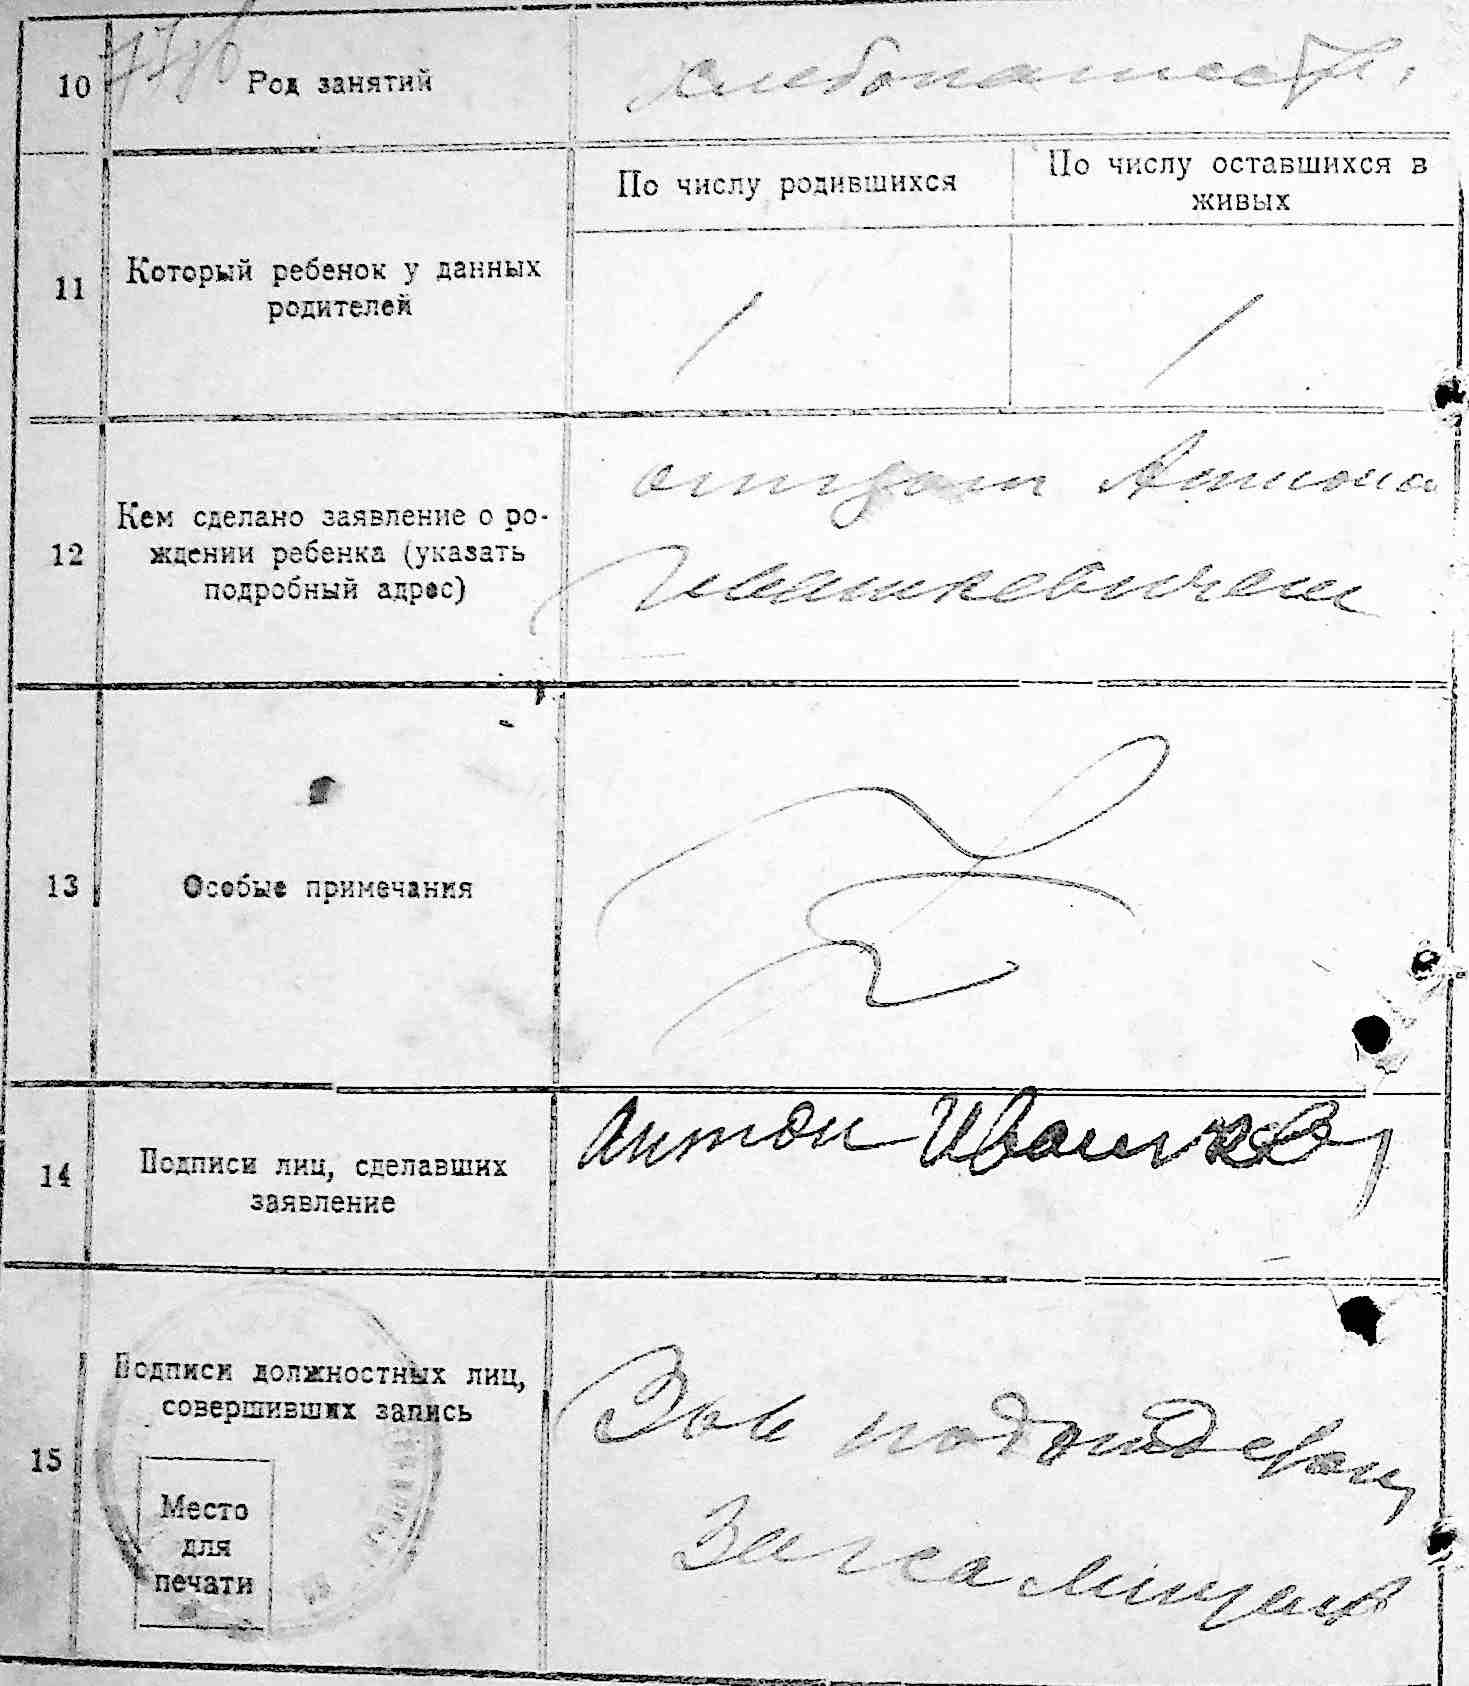 10 Род занятий хлебопашест.
По числу родившихся По числу оставшихся в
живых
11 Который ребенок у данных
родителей
1 1
отцом Антона
12 Кем сделано заявление о ро-
ждении ребенка (указать
подробный адрес)
Ивашкевичем
13 Особые примечания
14 Подписи лиц, сделавших
заявление
Антон Ивашкев
15 Подписи должностных лиц,
совершивших запись
Зав подотделом
Загса
Место
для
печати